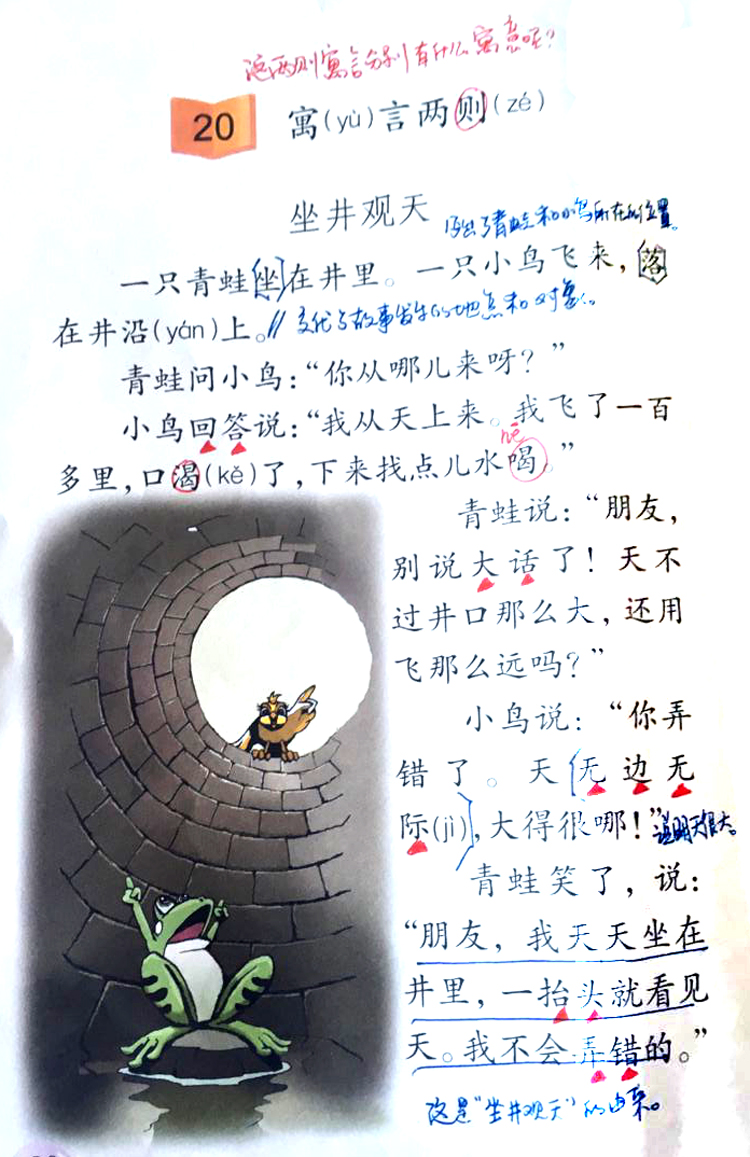 这两则寓言分别有什么寓意呢?
20 寓(yù)言两则(zé)
坐井观天
写出了青蛙和小鸟所在的位置。
一只青蛙坐在井里。一只小鸟飞来，落
在井沿(yán)上。//交代了故事发生的地点和对象。
青蛙问小鸟：“你从哪儿来呀？”
小鸟回答说：“我从天上来。我飞了一百
hē
多里，口渴(kě)了，下来找点儿水喝。”
青蛙说：“朋友，
别说大话了！天不
过井口那么大，还用
飞那么远吗？”
小鸟说：“你弄
错了。天无边无
际(jì)，大得很哪！”说明天很大。
青蛙笑了，说：
“朋友，我天天坐在
井里，一抬头就看见
天。我不会弄错的。”
这是“坐井观天”的由来。